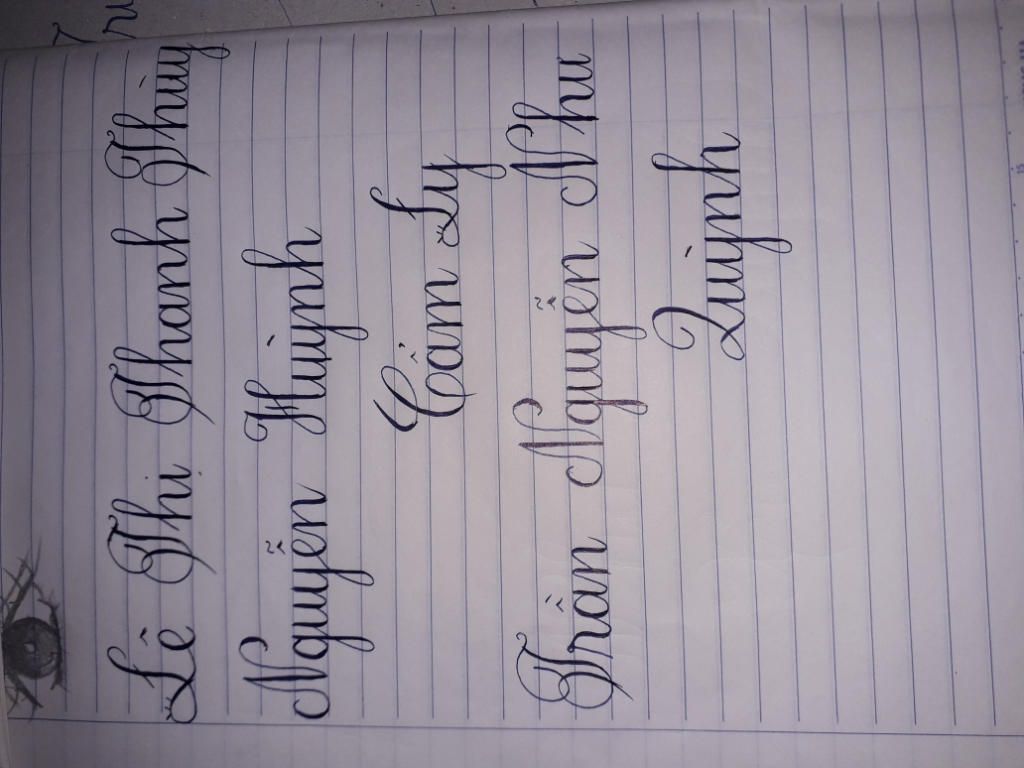 Lê Thị Thanh Thùy
Nguyễn Huỳnh
Cẩm Ly
Trần Nguyễn Như
Quỳnh